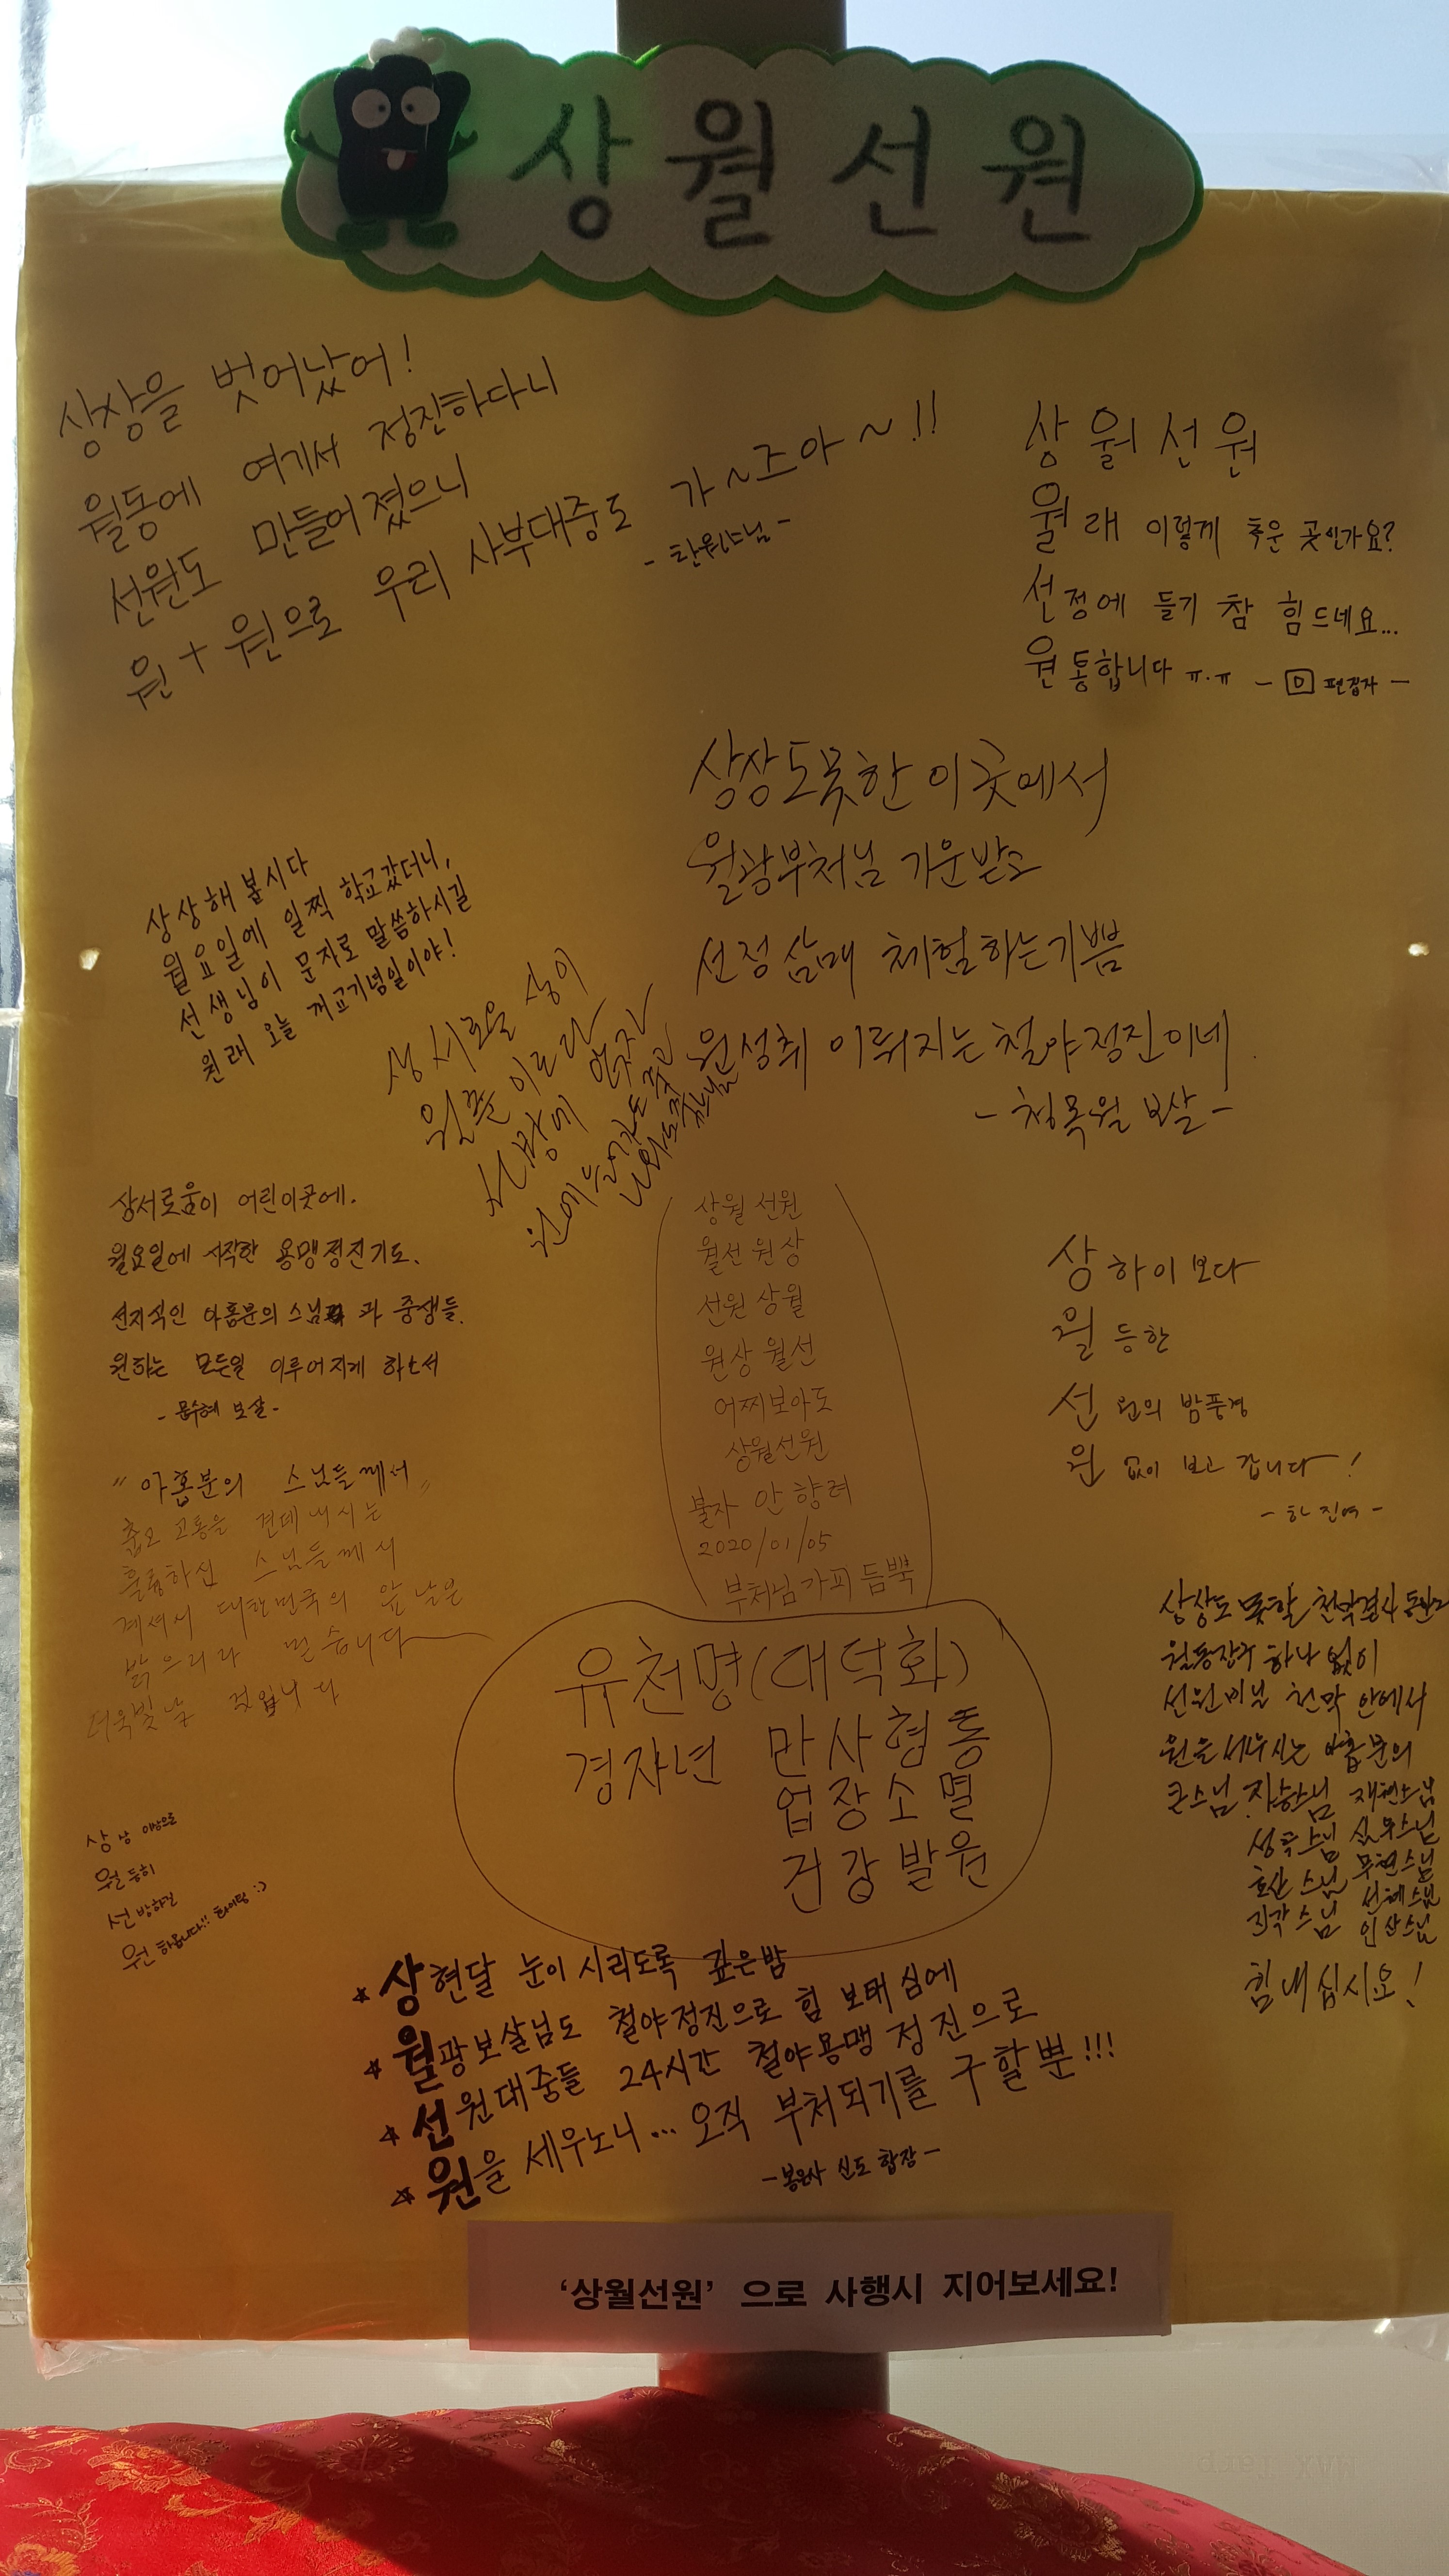 상월선원
상상을 벗어났어!
월동에 여기서 정진하다니
선원도 만들어졌으니
원+원으로 우리 사부대중도 가~즈아~!!
- 탄원스님 -
상월선원
월래 이렇게 추운 곳인가요?
선정에 들기 참 힘드네요...
원통합니다 ㅠ.ㅠ - 편집자 -
상상도못한 이곳에서
월광부처님 가운받고
선정삼매 체험하는기쁨
원성취 이뤄지는 철야정진이네
- 청목월 보살 -
상상해 봅시다
월요일에 일찍 학교갔더니,
선생님이 문자로 말씀하시길
원래 오늘 개교기념일이야!
상서로운 상이
월쯘이도라
선방에 앉자
원에
상서로움이 어린이곳에.
월요일에 시작한 용맹정진기도.
선지식인 아홉분의 스님 과 중생들.
원하는 모든일 이루어지게 하소서
- 문수혜 보살 -
"아홉분의 스님들께서"
춥고 고통을 견뎌내시는
훌륭하신 스님들께서
계셔서 대한민국의 앞날은
밝으리라 믿습니다
더욱빛날 것입니다
상월 선원
월선 원상
선원 상월
원상 월선
어찌보아도
상월선원
불자 안향려
2020/01/05
부처님가피 듬뿍
상하이보다
월등한
선원의 밤풍경
원없이 보고 갑니다!
- 하진여 -
유천명(대덕화)
경자년 만사형통
업장소멸
건강발원
상상도 못할 천막결사
월동장구 하나 없이
선원비닐 천막 안에서
원을세우시는 아홉분의
큰스님 자승스님 재현스님
성곡스님 심우스님
호산스님 무연스님
진각스님 선혜스님
인산스님
힘내십시요!
상상 이상으로
월등히
선방하길
원하옵니다!! 화이팅 :)
☆ 상현달 눈이 시리도록 깊은밤
☆ 월광보살님도 철야정진으로 힘 보태심에
☆ 선원대중들 24시간 철야용맹 정진으로
☆ 원을 세우노니... 오직 부처되기를 구할뿐!!!
- 봉은사 신도 합장 -
'상월선원' 으로 사행시 지어보세요!
MAX Tarp